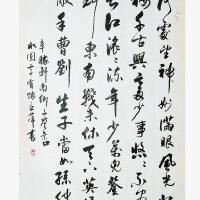 何處望神州滿眼風光北
樓千古興亡多少事悠悠不
長江滾滾流年少萬兜鍪
斷東南戰未休天下英雄
敵手曹劉生子當如孫仲
辛稼軒南鄉子登京口
北固亭有懷